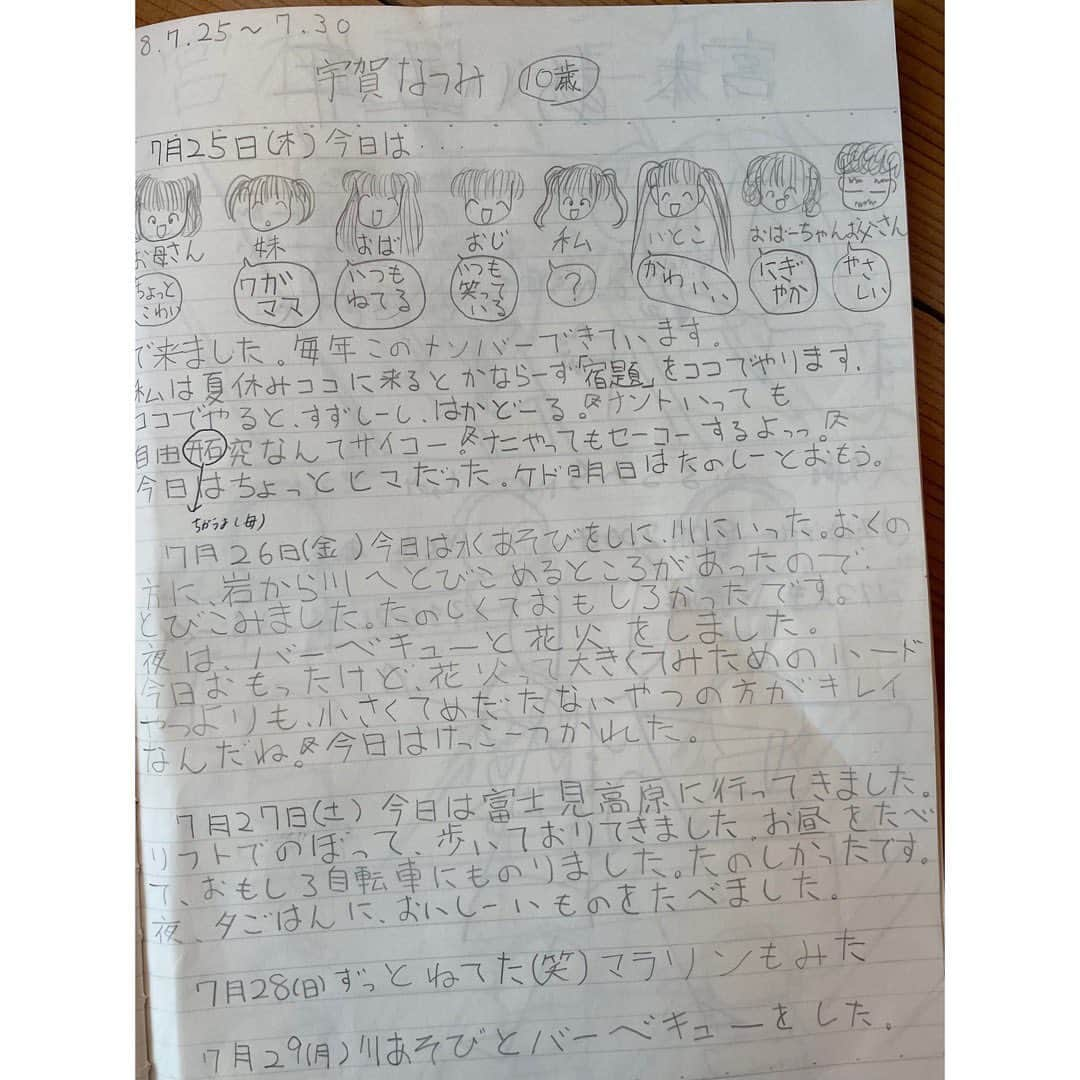 8.7.25～7.30
宇賀なつみ 10歳
7月25日(木)今日は・・・
お母さん 妹 おば おじ 私 いとこ おばーちゃん お父さん
ちょっとこわい ワガママ いつもねてる いつも笑っている ? かわいい にぎやか やさしい
で来ました。毎年このナンバーできています。
私は夏休みココに来るとかならーず「宿題」をココでやります。
ココでやると、すずしーし、はかどーる。ナントいっても
自由研究なんてサイコー ナニやってもセーコーするよっっ。
今日はちょっとヒマだった。ケド明日はたのしーとおもう。
ちがうよ(母)
7月26日(金)今日は水あそびをしに、川にいった。おくの
方に、岩から川へとびこめるところがあったので、
とびこみました。たのしくておもしろかったです。
夜は、バーベキューと花火をしました。
今日おもったけど、花火って大きくてみためのハード
やつよりも、小さくてめだたないやつの方がキレイ
なんだね。今日はけっこーつかれた。
7月27日(土)今日は富士見高原に行ってきました。
リフトでのぼって、歩いておりてきました。お昼をたべ
て、おもしろ自転車にものりました。たのしかったです。
夜、夕ごはんに、おいしーいものをたべました。
7月28(日)ずっとねてた(笑)マラソンもみた
7月29(月)川あそびとバーベキューをした。